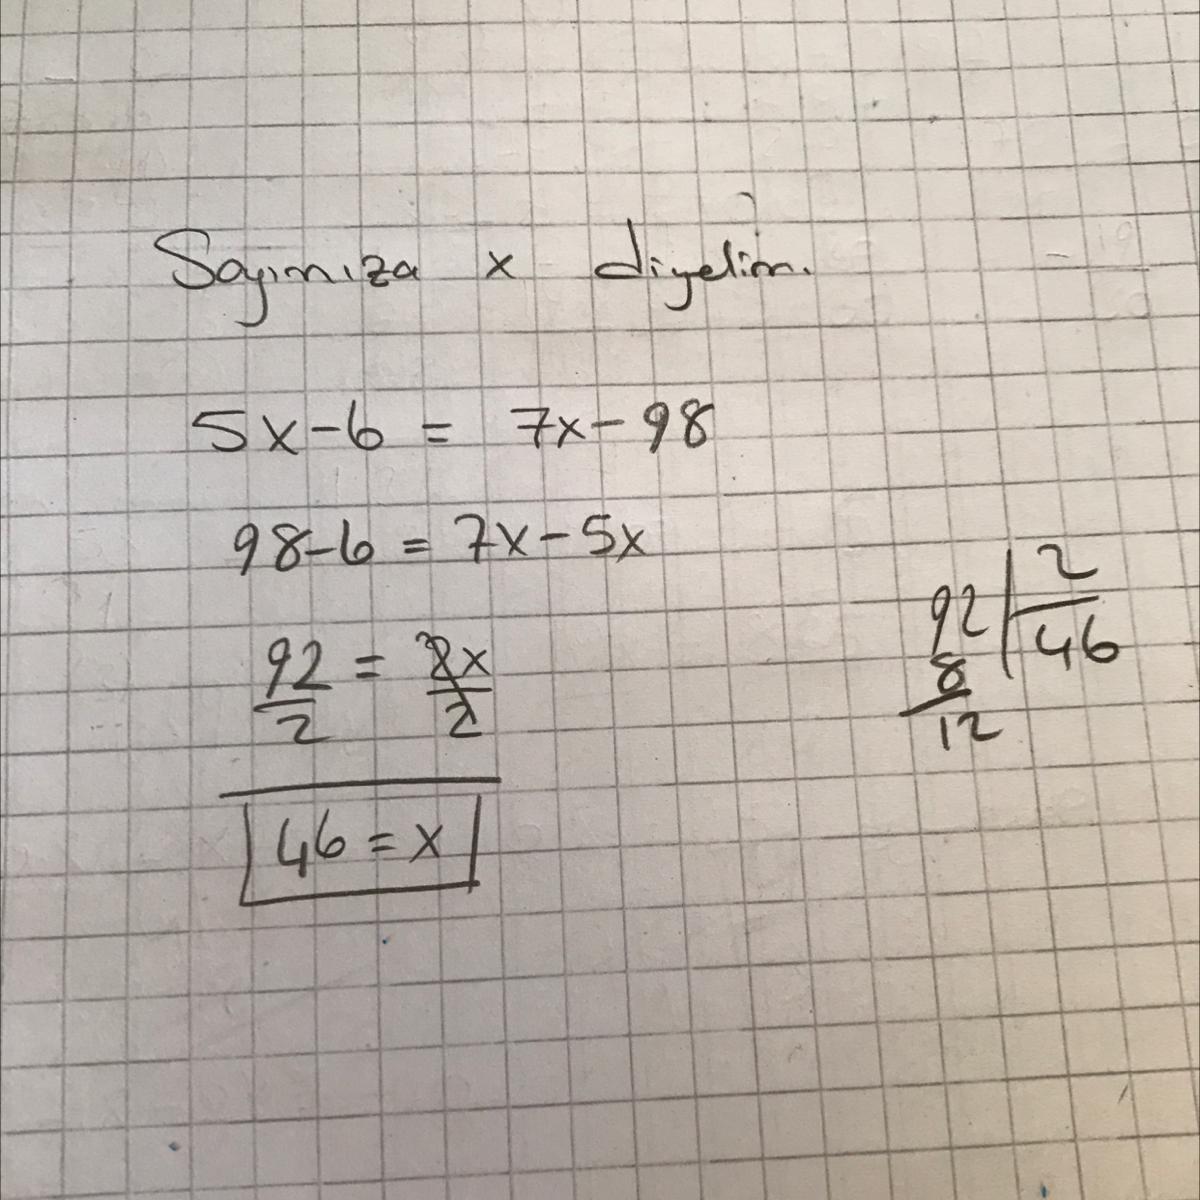 Sayımıza x diyelim.
5x-6 = 7x-98
98-6 = 7x-5x
92 = 2x
2 2
46 = x
92 2
8 46
12